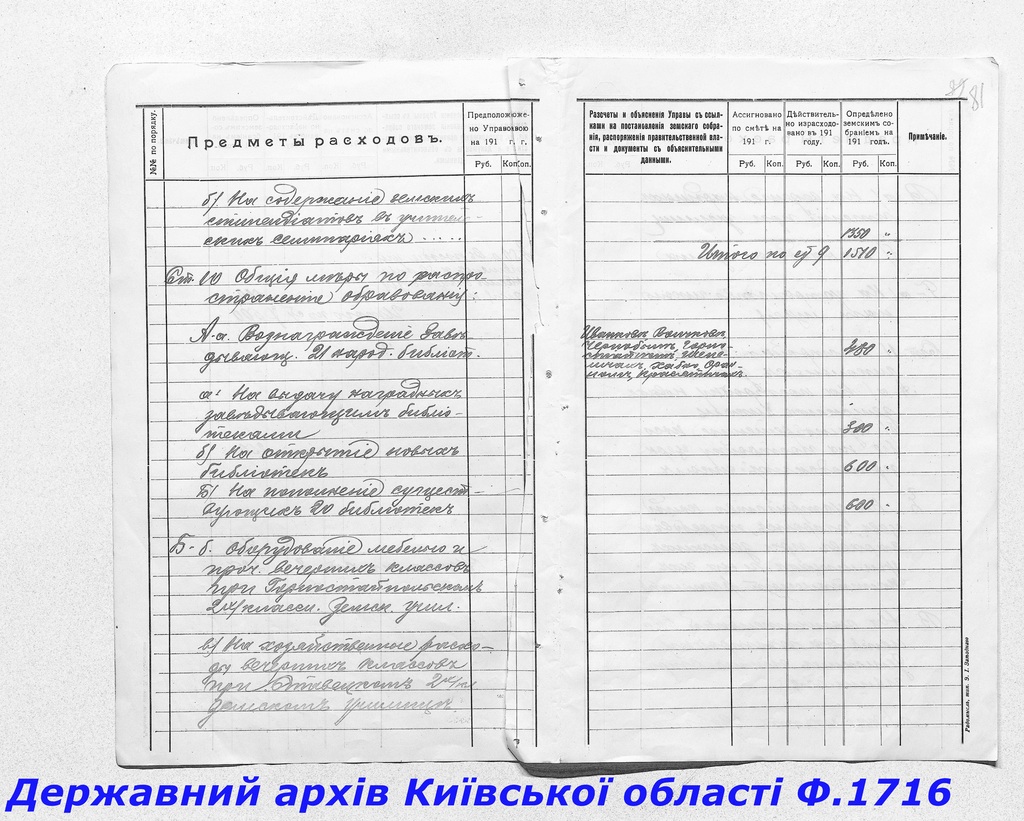 81
№№ по порядку.
Предметы расходовъ.
Предположено Управою на 191 г.
Руб. Коп.
б) На содержаніе земскихъ
стипендіатовъ въ учитель-
скихъ семинаріяхъ) .....
Ст. 10 Общія мѣры по распро-
страненію образованія:
А-а. Вознагражденіе Завѣ-
дывающ. 21 народ. библіот.
а: На выдачу наградныхъ
завѣдывающимъ библіо-
теками
б) На открытіе новыхъ
библіотекъ
Б) На пополненіе существ-
вующихъ 20 библіотекъ
Б-б. Оборудованіе мебелью и
проч. вечернихъ классовъ
при Горностайпольскомъ
2х/класси. Земск. учил.
в) На хозяйственные расхо-
ды вечернихъ классовъ
при 2х/кл
земскомъ училищѣ
Разсчеты и объясненія Управы съ ссыл-
ками на постановленія земскаго собра-
нія, распоряженія правительственной вла-
сти и документы съ объяснительными
данными.
Ассигновано
по смѣтѣ на
191 г.
Руб. Коп.
Дѣйствитель-
но израсходо-
вано въ 191
году.
Руб. Коп.
Опредѣлено
земскимъ со-
браніемъ на
191 годъ.
Руб. Коп.
Примѣчаніе.
1350 "
Итого по ст 9 1510 "
Иванковъ
Чернобыль, Горно-
стайполь,
Хабно,
480 "
300 "
600 "
600 "
Радомысль, тип.
Державний архів Київської області Ф.1716